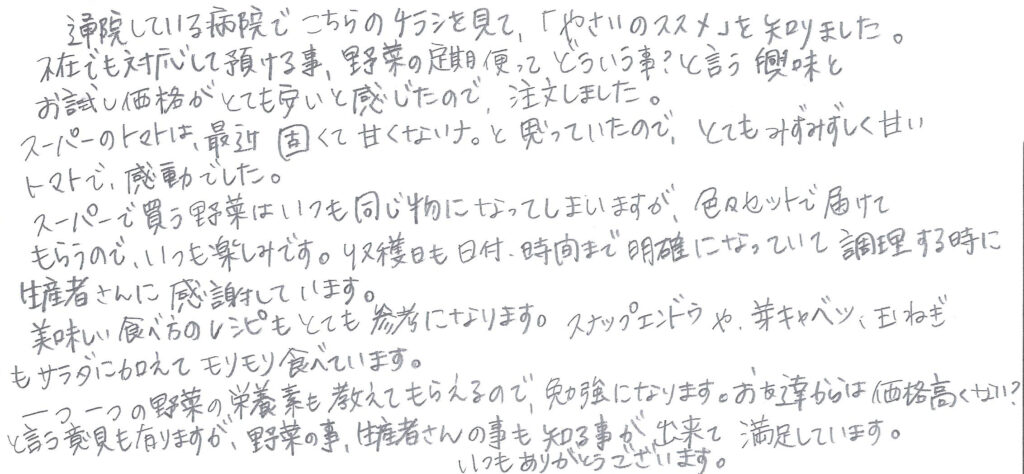 通院している病院でこちらのチラシを見て、「やさいのススメ」を知りました。
不在でも対応して預ける事、野菜の定期便ってどういう事？と言う興味と
お試し価格がとても安いと感じたので、注文しました。
スーパーのトマトは、最近 固くて甘くないナ。と思っていたので、とてもみずみずしく甘い
トマトで、感動でした。
スーパーで買う野菜はいつも同じ物になってしまいますが、色々セットで届けて
もらうので、いつも楽しみです。収穫日も日付、時間まで明確になっていて調理する時に
生産者さんに感謝しています。
美味しい食べ方のレシピもとても参考になります。スナップエンドウや、芽キャベツ、玉ねぎ
もサラダに加えてモリモリ食べています。
一つ一つの野菜の栄養素も教えてもらえるので、勉強になります。お友達からは価格高くない？
と言う意見も有りますが、野菜の事、生産者さんの事も知る事が出来て満足しています。
いつもありがとうございます。